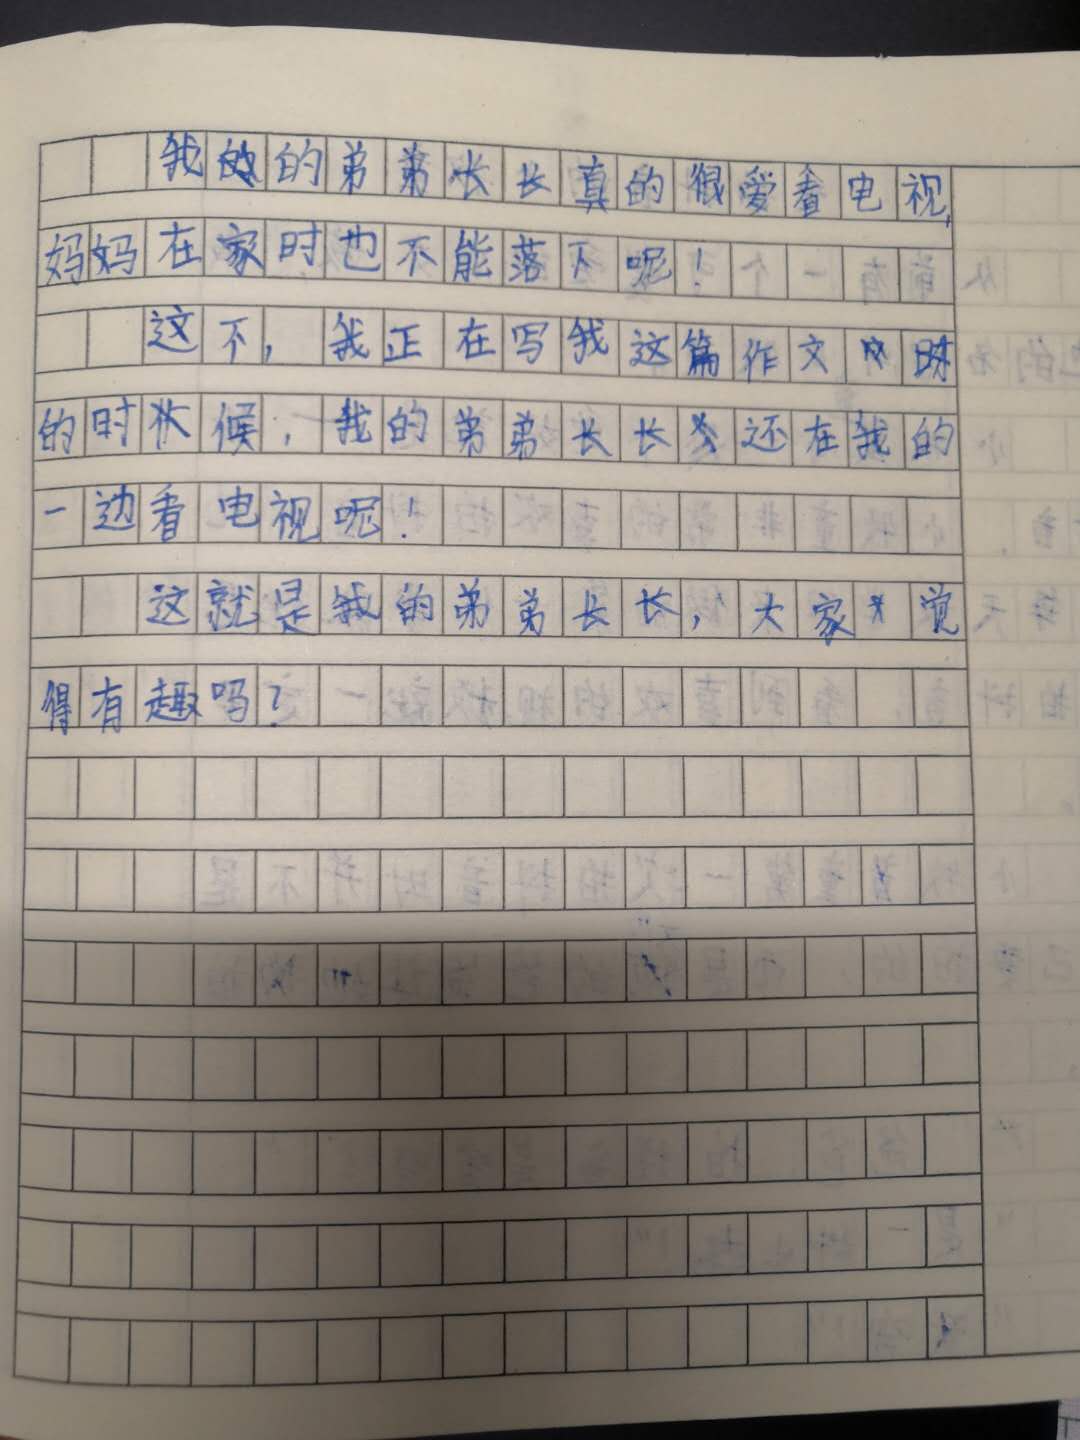 我的的弟弟长长真的很爱看电视,
妈妈在家时也不能落下呢！
这不，我正在写我这篇作文时
的时候，我的弟弟长长还在我的
一边看电视呢！
这就是我的弟弟长长，大家觉
得有趣吗？